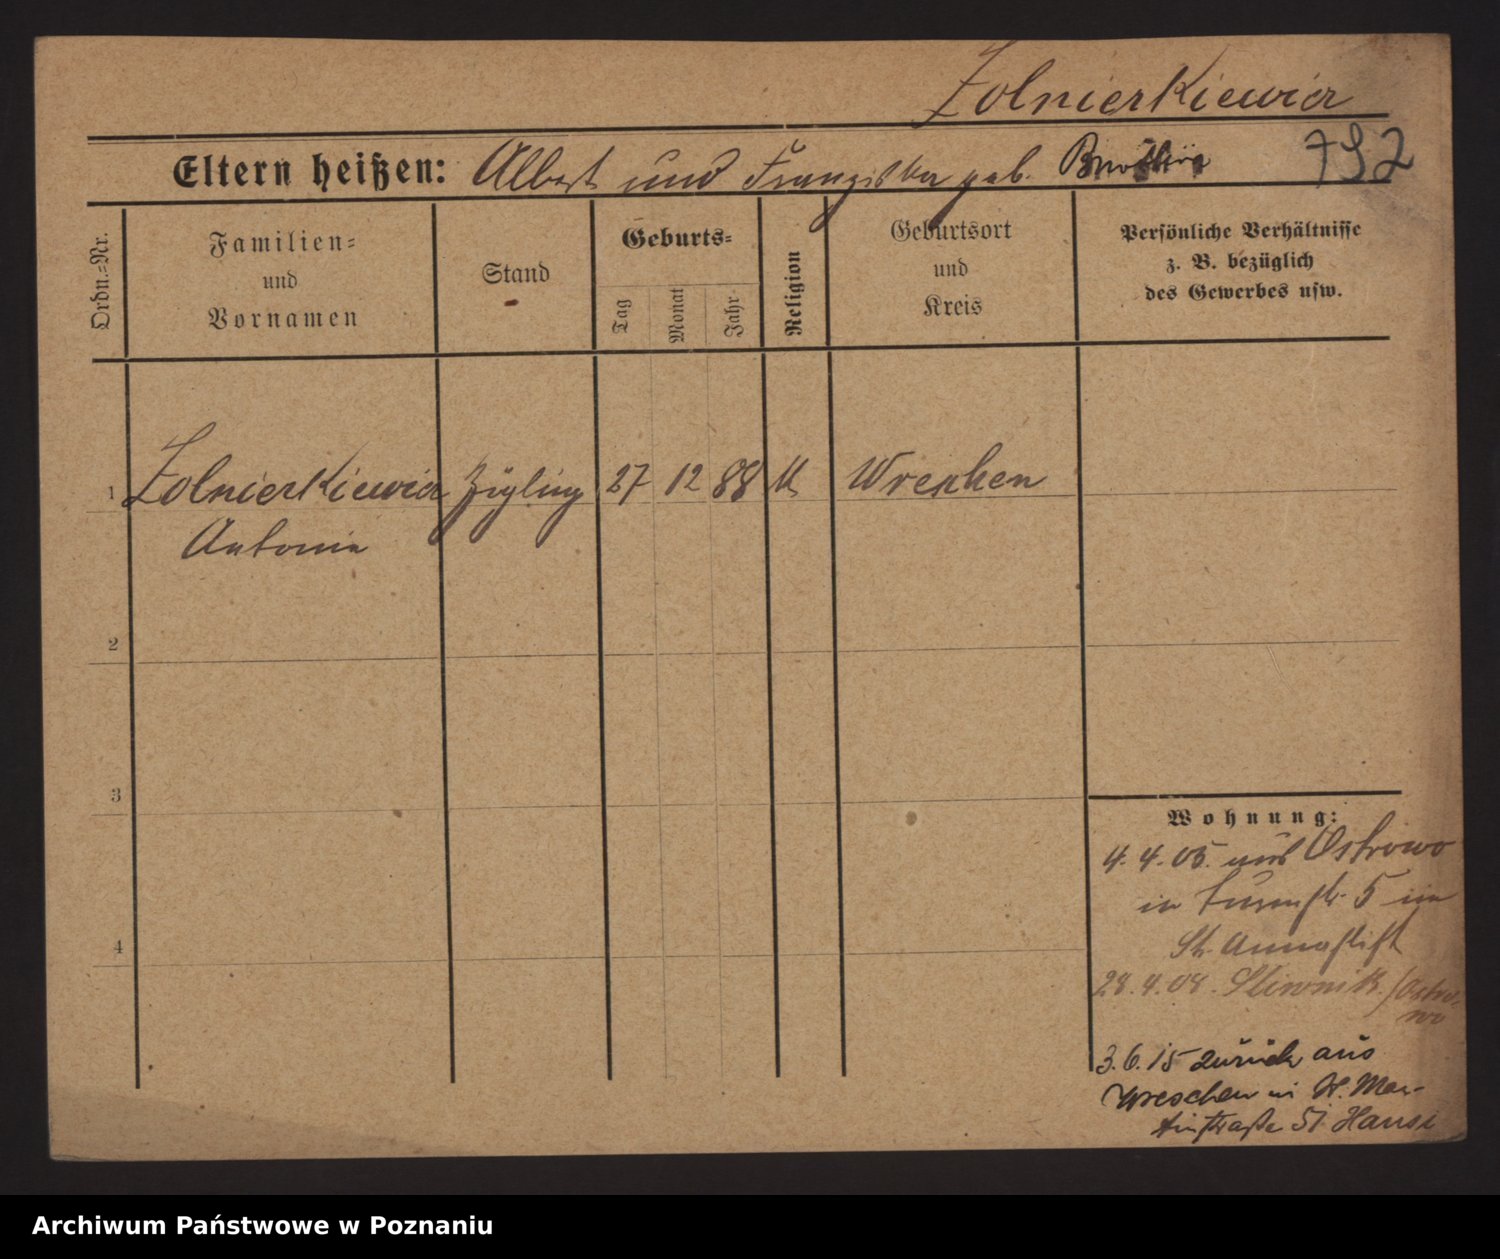 Zolnierkiewicz
Eltern heißen: Albert und Franziska geb.
792
Ordn.=Nr.
Familien=
und
Vornamen
Stand
Geburts=
Tag
Monat
Jahr
Religion
Geburtsort
und
Kreis
Persönliche Verhältnisse
z. B. bezüglich
des Gewerbes usw.
1 Zolnierkiewicz Zögling 27 12 88 K Wreschen
Antonie
2
3
4
Wohnung:
4. 4. 05. aus Ostrowo
in 5 im
St. Annastift
28. 4. 08. Sliwnik /Ostro-
wo
3. 6. 15 zurück aus
Wreschen in St. Mar-
tinstraße 51 Hause
Archiwum Państwowe w Poznaniu